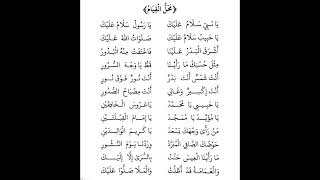 ﴿مَحَلُّ الْقِيَامِ﴾
يَا نَبِي سَلَامٌ عَلَيْكَ يَا رَسُولْ سَلَامٌ عَلَيْكَ
يَا حَبِيبْ سَلَامٌ عَلَيْكَ صَلَوَاتُ اللهْ عَلَيْكَ
أَشْرَقَ الْبَدْرُ عَلَيْنَا فَاخْتَفَتْ مِنْهُ الْبُدُورُ
مِثْلَ حُسْنِكَ مَا رَأَيْنَا قَطُّ يَا وَجْهَ السُّرُورِ
أَنْتَ شَمْسٌ أَنْتَ بَدْرٌ أَنْتَ نُورٌ فَوْقَ نُورٍ
أَنْتَ إِكْسِيرٌ وَغَالِي أَنْتَ مِصْبَاحُ الصُّدُورِ
يَا حَبِيبِي يَا مُحَمَّدْ يَا عَرُوسَ الْخَافِقَيْنِ
يَا مُؤَيَّدْ يَا مُمَجَّدْ يَا إِمَامَ الْقِبْلَتَيْنِ
مَنْ رَأَى وَجْهَكَ يَسْعَدْ يَا كَرِيمَ الْوَالِدَيْنِ
حَوْضُكَ الصَّافِي الْمُبَرَّدْ وِرْدُنَا يَوْمَ النُّشُورِ
مَا رَأَيْنَا الْعِيسَ حَنَّتْ بِالسُّرَى إِلَّا إِلَيْكَ
وَالْغَمَامَةْ قَدْ أَظَلَّتْ وَالْمَلَا صَلُّوا عَلَيْكَ